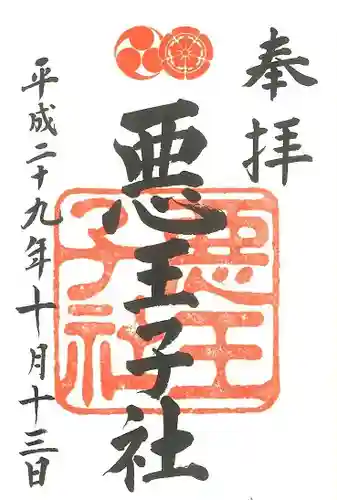 奉拝
悪王子社
悪王子社
平成二十九年十月十三日